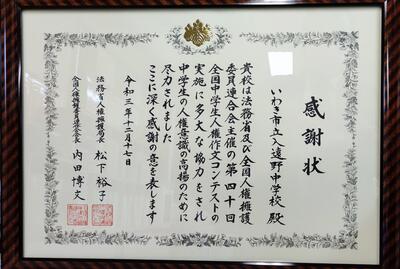 感謝状
いわき市立入遠野中学校 殿
貴校は法務省及び全国人権擁護
委員連合会主催の第四十回
全国中学生人権作文コンテストの
実施に多大な協力をされ
中学生の人権意識の高揚のために
尽力されました
ここに深く感謝の意を表します
令和三年十二月十七日
法務省人権擁護局長 松下裕子
全国人権擁護委員連合会長 内田博文